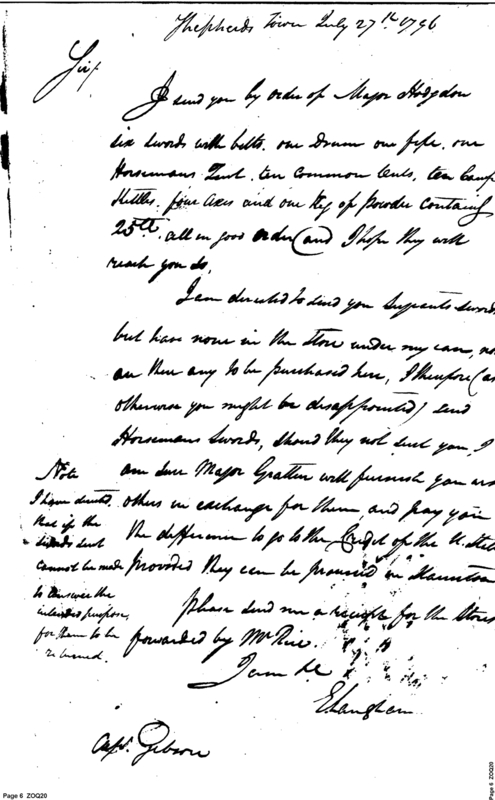 Shepherds Town July 27th 1796
Sir,
I send you by order of Major Hodgdon
six swords with belts. one Drum one fife. one
Horsemans Tent. ten common tents, ten Camp
Kettles. five axes and one Keg of powder containg
25lb. all in good order (and I hope they will
reach you so,
I am directed to send you Serjeants swords
but have none in the store under my care, no
are there any to be purchased here, I therefore (as
otherwise you might be disappointed) send
Horsemans Swords, should they not suit you, I
am sure Major Grattan will furnish you
others in exchange for them and pay you
the difference to go to the Credit of the U. States
provided they can be procured in Staunton
please send me a receipt for the Stores
forwarded by Mr Rice.
I am &c
E Langham
Capt. Gibson
Note
I have directed
that if the
swords sent
cannot be made
to answer the
intended purpose,
for them to be
returned.
Page 6 ZOQ20
Page 6 ZOQ20